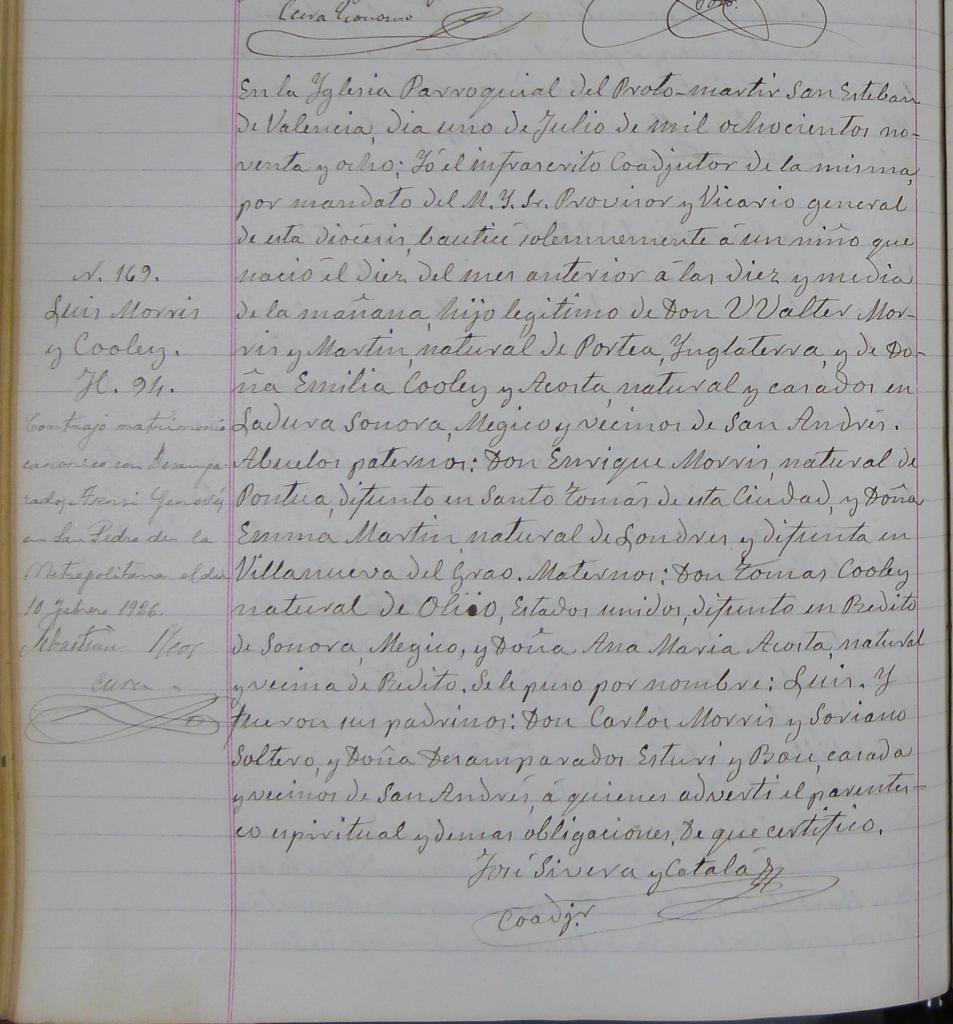 Cura Economo
En la Yglesia Parroquial del Proto-martir San Esteban
de Valencia, dia uno de Julio de mil ochocientos no-
venta y ocho: Yó el infrascrito Coadjutor de la misma,
por mandato del M. Y. Sr. Provisor y Vicario general
de esta diócesis, bauticé solemnemente á un niño que
nació el diez del mes anterior á las diez y media
de la mañana, hijo legitimo de Don VValter Mor-
ris y Martin, natural de Portea, Ynglaterra, y de Do-
ña Emilia Cooley y Acosta, natural y casados en
Ladura Sonora, Megico y vecinos de San Andrés.
Abuelos paternos: Don Enrique Morris, natural de
Pontua, difunto en Santo Tomás de esta Ciudad, y Doña
Emma Martin natural de Londres y difunta en
Villanueva del Grao. Maternos: Don Tomas Cooley
natural de Ohio, Estados unidos, difunto en Redito
de Sonora, Megico, y Doña Ana Maria Acosta, natural
y vecina de Redito. Se le puso por nombre: Luis. Y
fueron sus padrinos: Don Carlos Morris y Soriano
Soltero, y Doña Desamparados Esturi y Bau, casada
y vecinos de San Andrés, á quienes advertí el parentes-
co espiritual y demas obligaciones. De que certifico.
José Sivera y Catalá
Coadjr
N. 169.
Luis Morris
y Cooley.
H. 94.
Contrajo matrimonio
canonico con Desampa-
rados Asensi Genovés
en San Pedro de la
Metropolitana el dia
10 febrero 1926.
Sebastián
cura